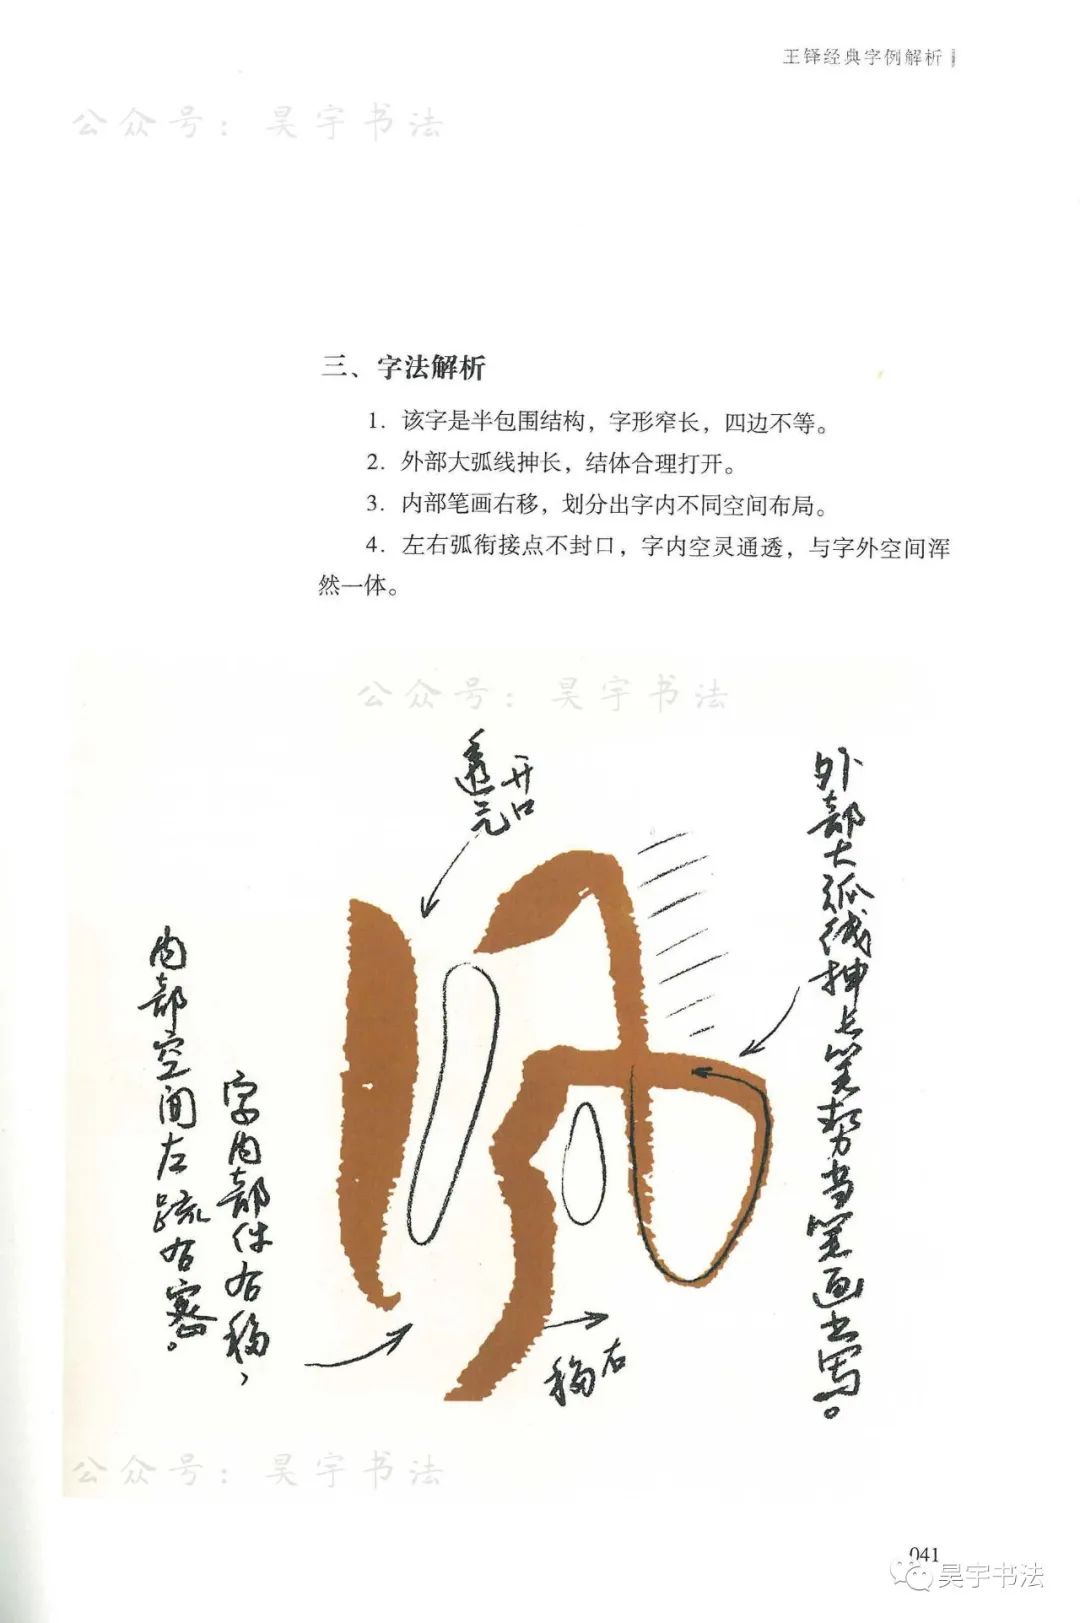 王铎经典字例解析
公众号：昊宇书法
三、字法解析
1. 该字是半包围结构，字形窄长，四边不等。
2. 外部大弧线抻长，结体合理打开。
3. 内部笔画右移，划分出字内不同空间布局。
4. 左右弧衔接点不封口，字内空灵通透，与字外空间浑
然一体。
公众号：昊宇书法
开口
透亮
外部大弧线抻长笔势当笔画书写。
内部空间左疏右密。
字内部件右移，
右移
公众号：昊宇书法
041
昊宇书法